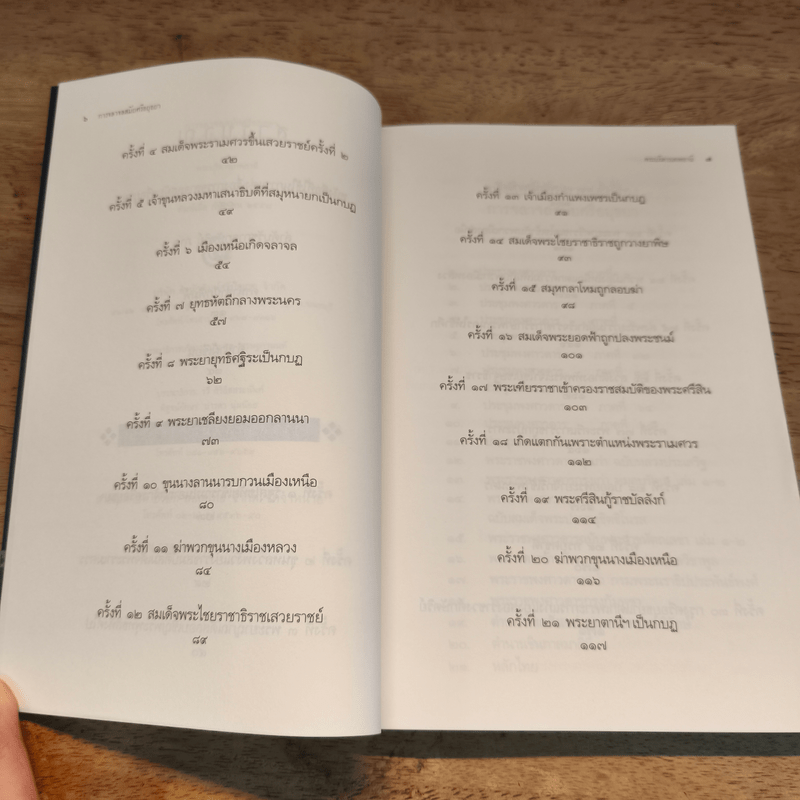 ๖
ครั้งที่ ๔ สมเด็จพระราเมศวรขึ้นเสวยราชย์ครั้งที่ ๒
๔๒
ครั้งที่ ๕ เจ้าขุนหลวงมหาเสนาธิบดีที่สมุหนายกเป็นกบฏ
๔๙
ครั้งที่ ๖ เมืองเหนือเกิดจลาจล
๕๔
ครั้งที่ ๗ ยุทธหัตถีกลางพระนคร
๕๗
ครั้งที่ ๘ พระยายุทธิศฐิระเป็นกบฏ
๖๒
ครั้งที่ ๙ พระยาเชลียงยอมออกลานนา
๗๓
ครั้งที่ ๑๐ ขุนนางลานนารบกวนเมืองเหนือ
๘๐
ครั้งที่ ๑๑ ฆ่าพวกขุนนางเมืองหลวง
๘๔
ครั้งที่ ๑๒ สมเด็จพระไชยราชาธิราชเสวยราชย์
๘๙
ครั้งที่ ๑๓ เจ้าเมืองกำแพงเพชรเป็นกบฏ
๙๑
ครั้งที่ ๑๔ สมเด็จพระไชยราชาธิราชถูกวางยาพิษ
๙๓
ครั้งที่ ๑๕ สมุหกลาโหมถูกลอบฆ่า
๙๘
ครั้งที่ ๑๖ สมเด็จพระยอดฟ้าถูกปลงพระชนม์
๑๐๑
ครั้งที่ ๑๗ พระเทียรราชาเข้าครองราชสมบัติของพระศรีสิน
๑๐๓
ครั้งที่ ๑๘ เกิดแตกกันเพราะตำแหน่งพระราเมศวร
๑๑๒
ครั้งที่ ๑๙ พระศรีสินกู้ราชบัลลังก์
๑๑๔
ครั้งที่ ๒๐ ฆ่าพวกขุนนางเมืองเหนือ
๑๑๖
ครั้งที่ ๒๑ พระยาตานีฯ เป็นกบฏ
๑๑๗